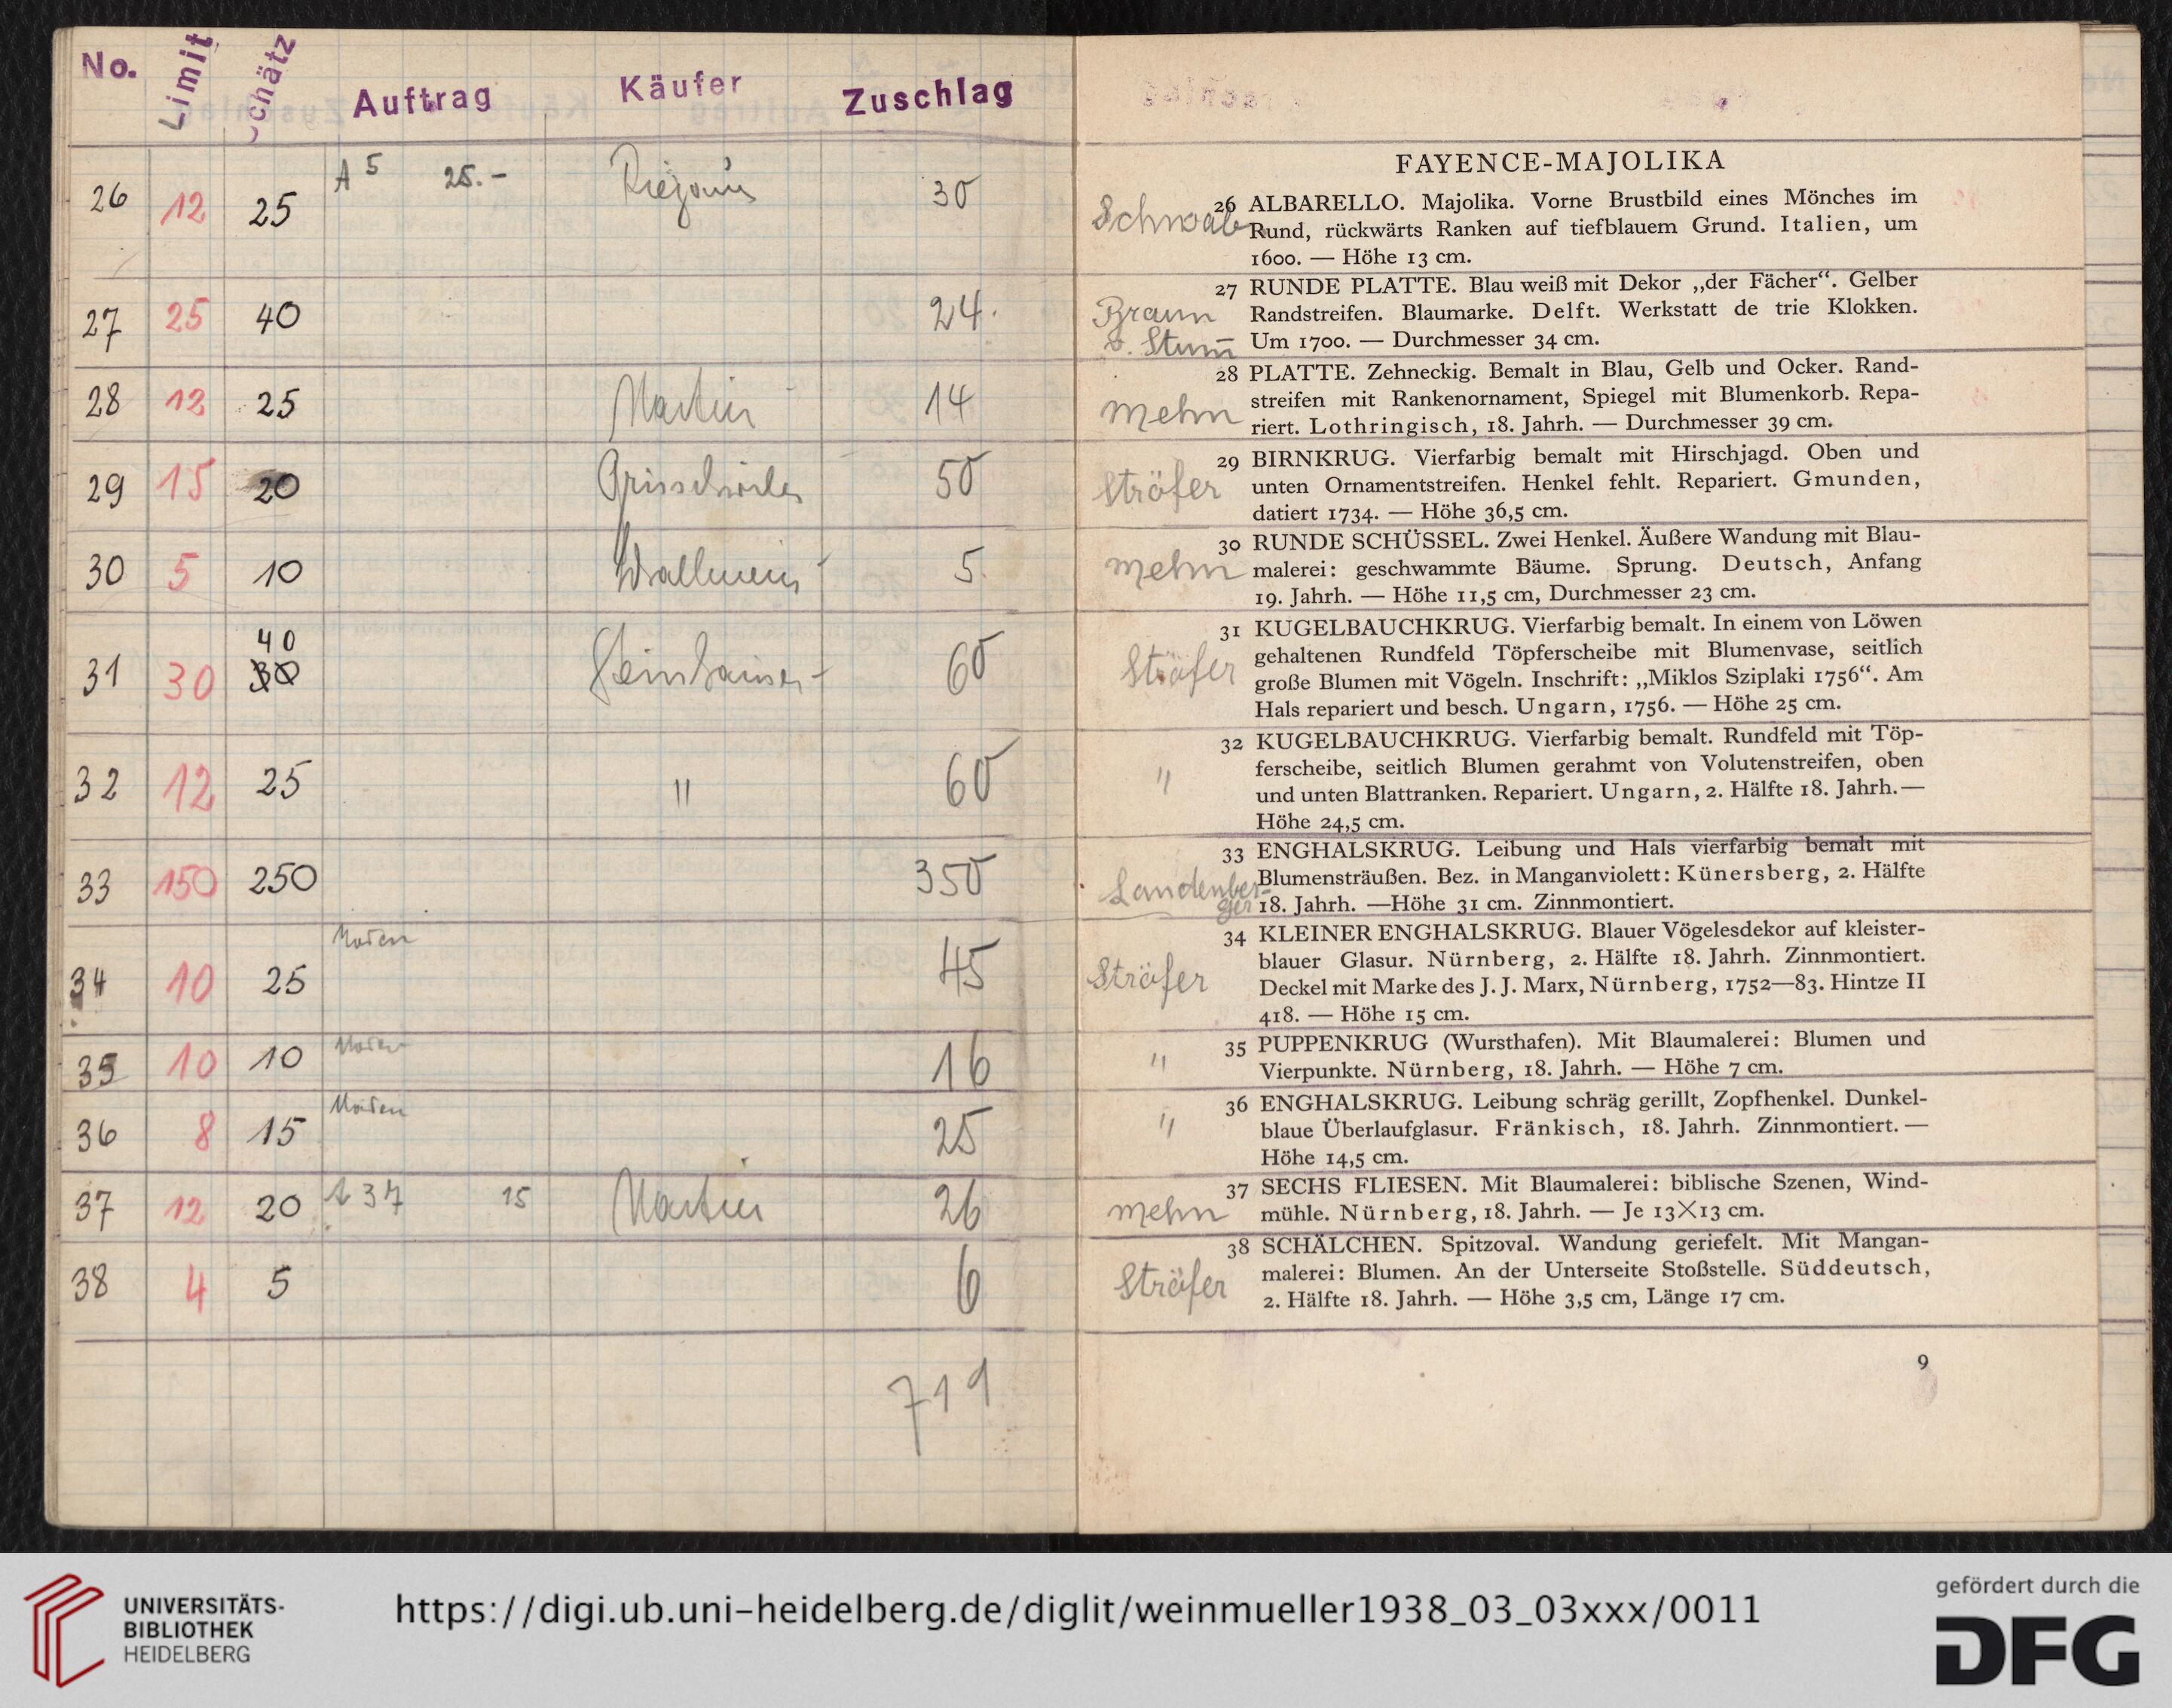 No. Limit Schätz Auftrag Käufer Zuschlag
26 12 25 A 5 25.- 30
27 25 40 24.
28 12 25 Martin 14
29 15 20 50
30 5 10 5.
31 30 40 30 60
32 12 25 " 60
33 150 250 350
34 10 25 45
35 10 10 16
36 8 15 25
37 12 20 A 37 15 Martin 26
38 4 5 6
719
FAYENCE-MAJOLIKA
Schwab
26 ALBARELLO. Majolika. Vorne Brustbild eines Mönches im
Rund, rückwärts Ranken auf tiefblauem Grund. Italien, um
1600. — Höhe 13 cm.
Braun
v. Stum̄
27 RUNDE PLATTE. Blau weiß mit Dekor „der Fächer“. Gelber
Randstreifen. Blaumarke. Delft. Werkstatt de trie Klokken.
Um 1700. — Durchmesser 34 cm.
Mehn
28 PLATTE. Zehneckig. Bemalt in Blau, Gelb und Ocker. Rand-
streifen mit Rankenornament, Spiegel mit Blumenkorb. Repa-
riert. Lothringisch, 18. Jahrh. — Durchmesser 39 cm.
Sträfer
29 BIRNKRUG. Vierfarbig bemalt mit Hirschjagd. Oben und
unten Ornamentstreifen. Henkel fehlt. Repariert. Gmunden,
datiert 1734. — Höhe 36,5 cm.
Mehn
30 RUNDE SCHÜSSEL. Zwei Henkel. Äußere Wandung mit Blau-
malerei: geschwammte Bäume. Sprung. Deutsch, Anfang
19. Jahrh. — Höhe 11,5 cm, Durchmesser 23 cm.
Sträfer
31 KUGELBAUCHKRUG. Vierfarbig bemalt. In einem von Löwen
gehaltenen Rundfeld Töpferscheibe mit Blumenvase, seitlich
große Blumen mit Vögeln. Inschrift: „Miklos Sziplaki 1756“. Am
Hals repariert und besch. Ungarn, 1756. — Höhe 25 cm.
"
32 KUGELBAUCHKRUG. Vierfarbig bemalt. Rundfeld mit Töp-
ferscheibe, seitlich Blumen gerahmt von Volutenstreifen, oben
und unten Blattranken. Repariert. Ungarn, 2. Hälfte 18. Jahrh.—
Höhe 24,5 cm.
Landenber-
ger
33 ENGHALSKRUG. Leibung und Hals vierfarbig bemalt mit
Blumensträußen. Bez. in Manganviolett: Künersberg, 2. Hälfte
18. Jahrh. —Höhe 31 cm. Zinnmontiert.
Sträfer
34 KLEINER ENGHALSKRUG. Blauer Vögelesdekor auf kleister-
blauer Glasur. Nürnberg, 2. Hälfte 18. Jahrh. Zinnmontiert.
Deckel mit Marke des J. J. Marx, Nürnberg, 1752—83. Hintze II
418. — Höhe 15 cm.
"
35 PUPPENKRUG (Wursthafen). Mit Blaumalerei: Blumen und
Vierpunkte. Nürnberg, 18. Jahrh. — Höhe 7 cm.
"
36 ENGHALSKRUG. Leibung schräg gerillt, Zopfhenkel. Dunkel-
blaue Überlaufglasur. Fränkisch, 18. Jahrh. Zinnmontiert. —
Höhe 14,5 cm.
Mehn
37 SECHS FLIESEN. Mit Blaumalerei: biblische Szenen, Wind-
mühle. Nürnberg, 18. Jahrh. — Je 13×13 cm.
Sträfer
38 SCHÄLCHEN. Spitzoval. Wandung geriefelt. Mit Mangan-
malerei: Blumen. An der Unterseite Stoßstelle. Süddeutsch,
2. Hälfte 18. Jahrh. — Höhe 3,5 cm, Länge 17 cm.
9
UNIVERSITÄTS-
BIBLIOTHEK
HEIDELBERG
https://digi.ub.uni-heidelberg.de/diglit/weinmueller1938_03_03xxx/0011
gefördert durch die
DFG